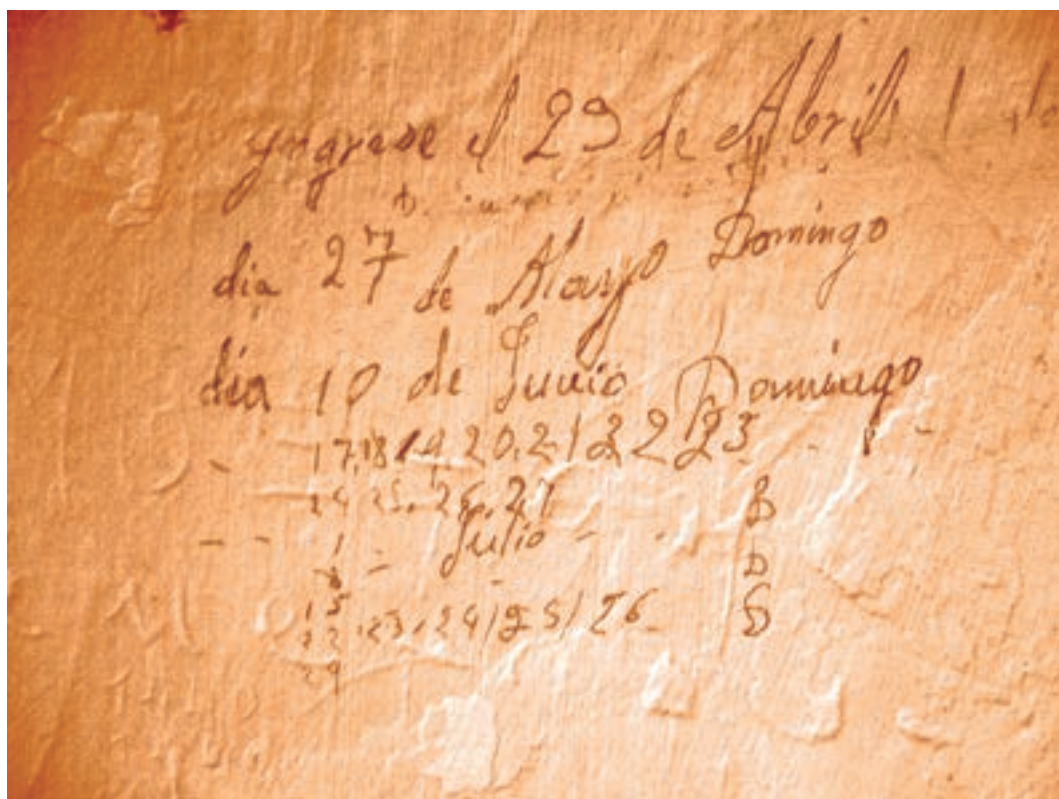 yngrese el 29 de Abril
dia 27 de Mayo Domingo
dia 10 de Junio Domingo
17,18 19, 20, 21 22 23
24 25. 26. 27
1 - Julio - - D
8 - D
15
22 23, 24/25/26 D
29